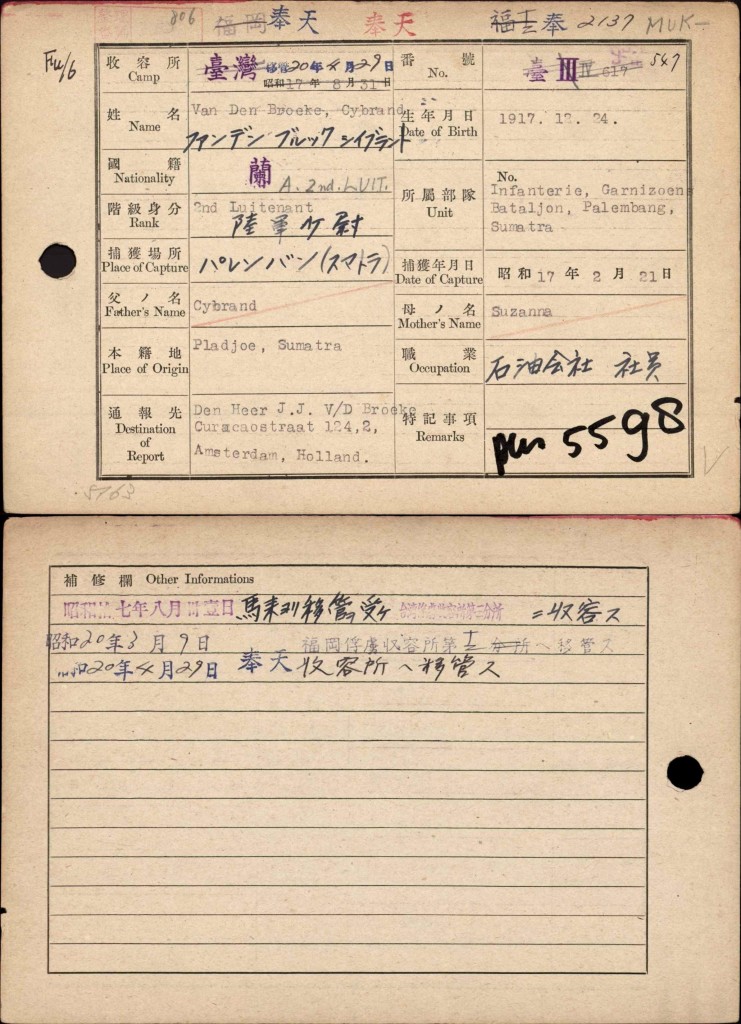 806 福岡 奉天 奉天 福士奉 2137 MUK-
Fu/6
收容所 Camp 臺灣 移管20年4月29日
昭和17年8月31日
番號 No. 臺 III IV 617 547
姓名 Name Van Den Broeke, Cybrand
ファンデン ブルック シイブラント
生年月日 Date of Birth 1917. 12. 24.
國籍 Nationality 蘭 A. 2nd. LUIT.
階級身分 Rank 2nd Luitenant
陸軍少尉
所屬部隊 Unit No.
Infanterie, Garnizoens
Bataljon, Palembang,
Sumatra
捕獲場所 Place of Capture パレンバン(スマトラ)
捕獲年月日 Date of Capture 昭和17年2月21日
父ノ名 Father's Name Cybrand
母ノ名 Mother's Name Suzanna
本籍地 Place of Origin Pladjoe, Sumatra
職業 Occupation 石油会社 社員
通報先 Destination of Report
Den Heer J.J. V/D Broeke
Curacaostraat 124,2,
Amsterdam, Holland.
特記事項 Remarks 5598
5163
補修欄 Other Informations
昭和十七年八月卅壹日 馬来ヨリ移管ヲ受ケ 台湾俘虜收容所第三分所 ニ收容ス
昭和20年3月9日 福岡俘虜収容所第 分所へ移管ス
昭和20年4月29日 奉天 收容所へ移管ス